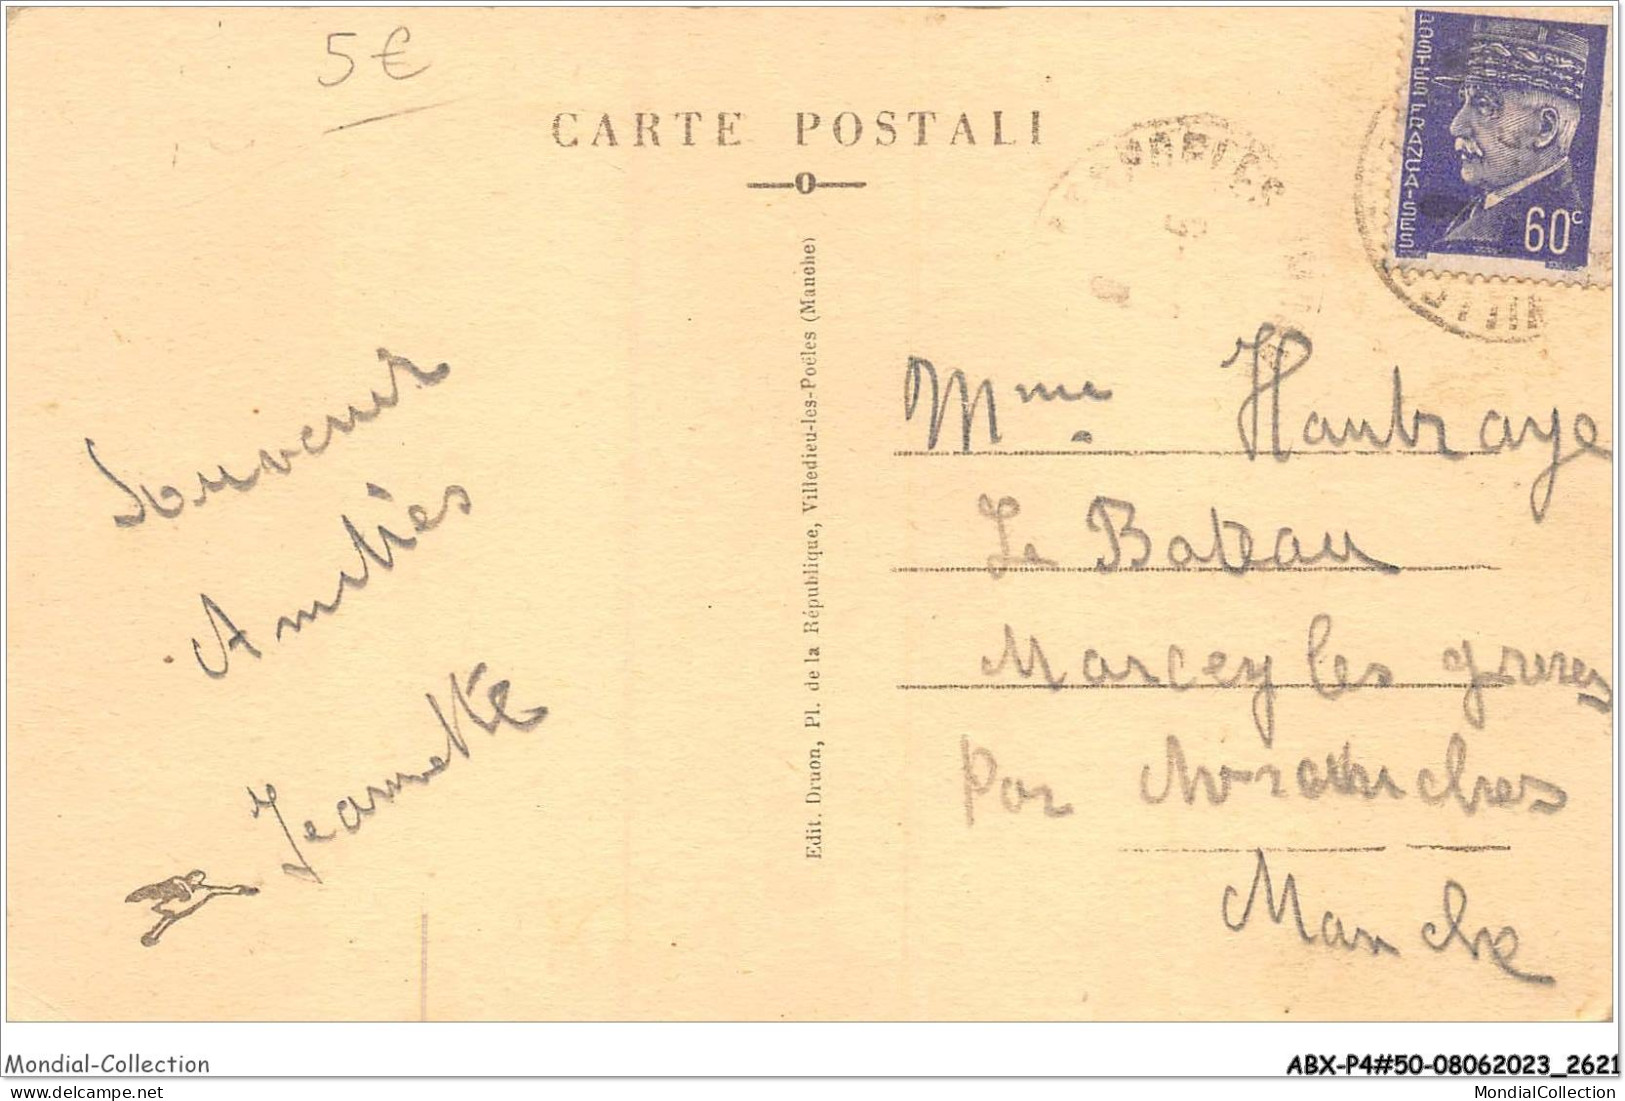 5€
CARTE POSTALE
POSTES FRANÇAISES
60c
Edit. Druon, Pl. de la République, Villedieu-les-Poëles (Manche)
Souvenir
Amitiés
Jeannette
Mme Hautraye
Le Bateau
Marcey les grèves
Par Avranches
Manche
Mondial-Collection
ABX-P4#50-08062023_2621
MondialCollection